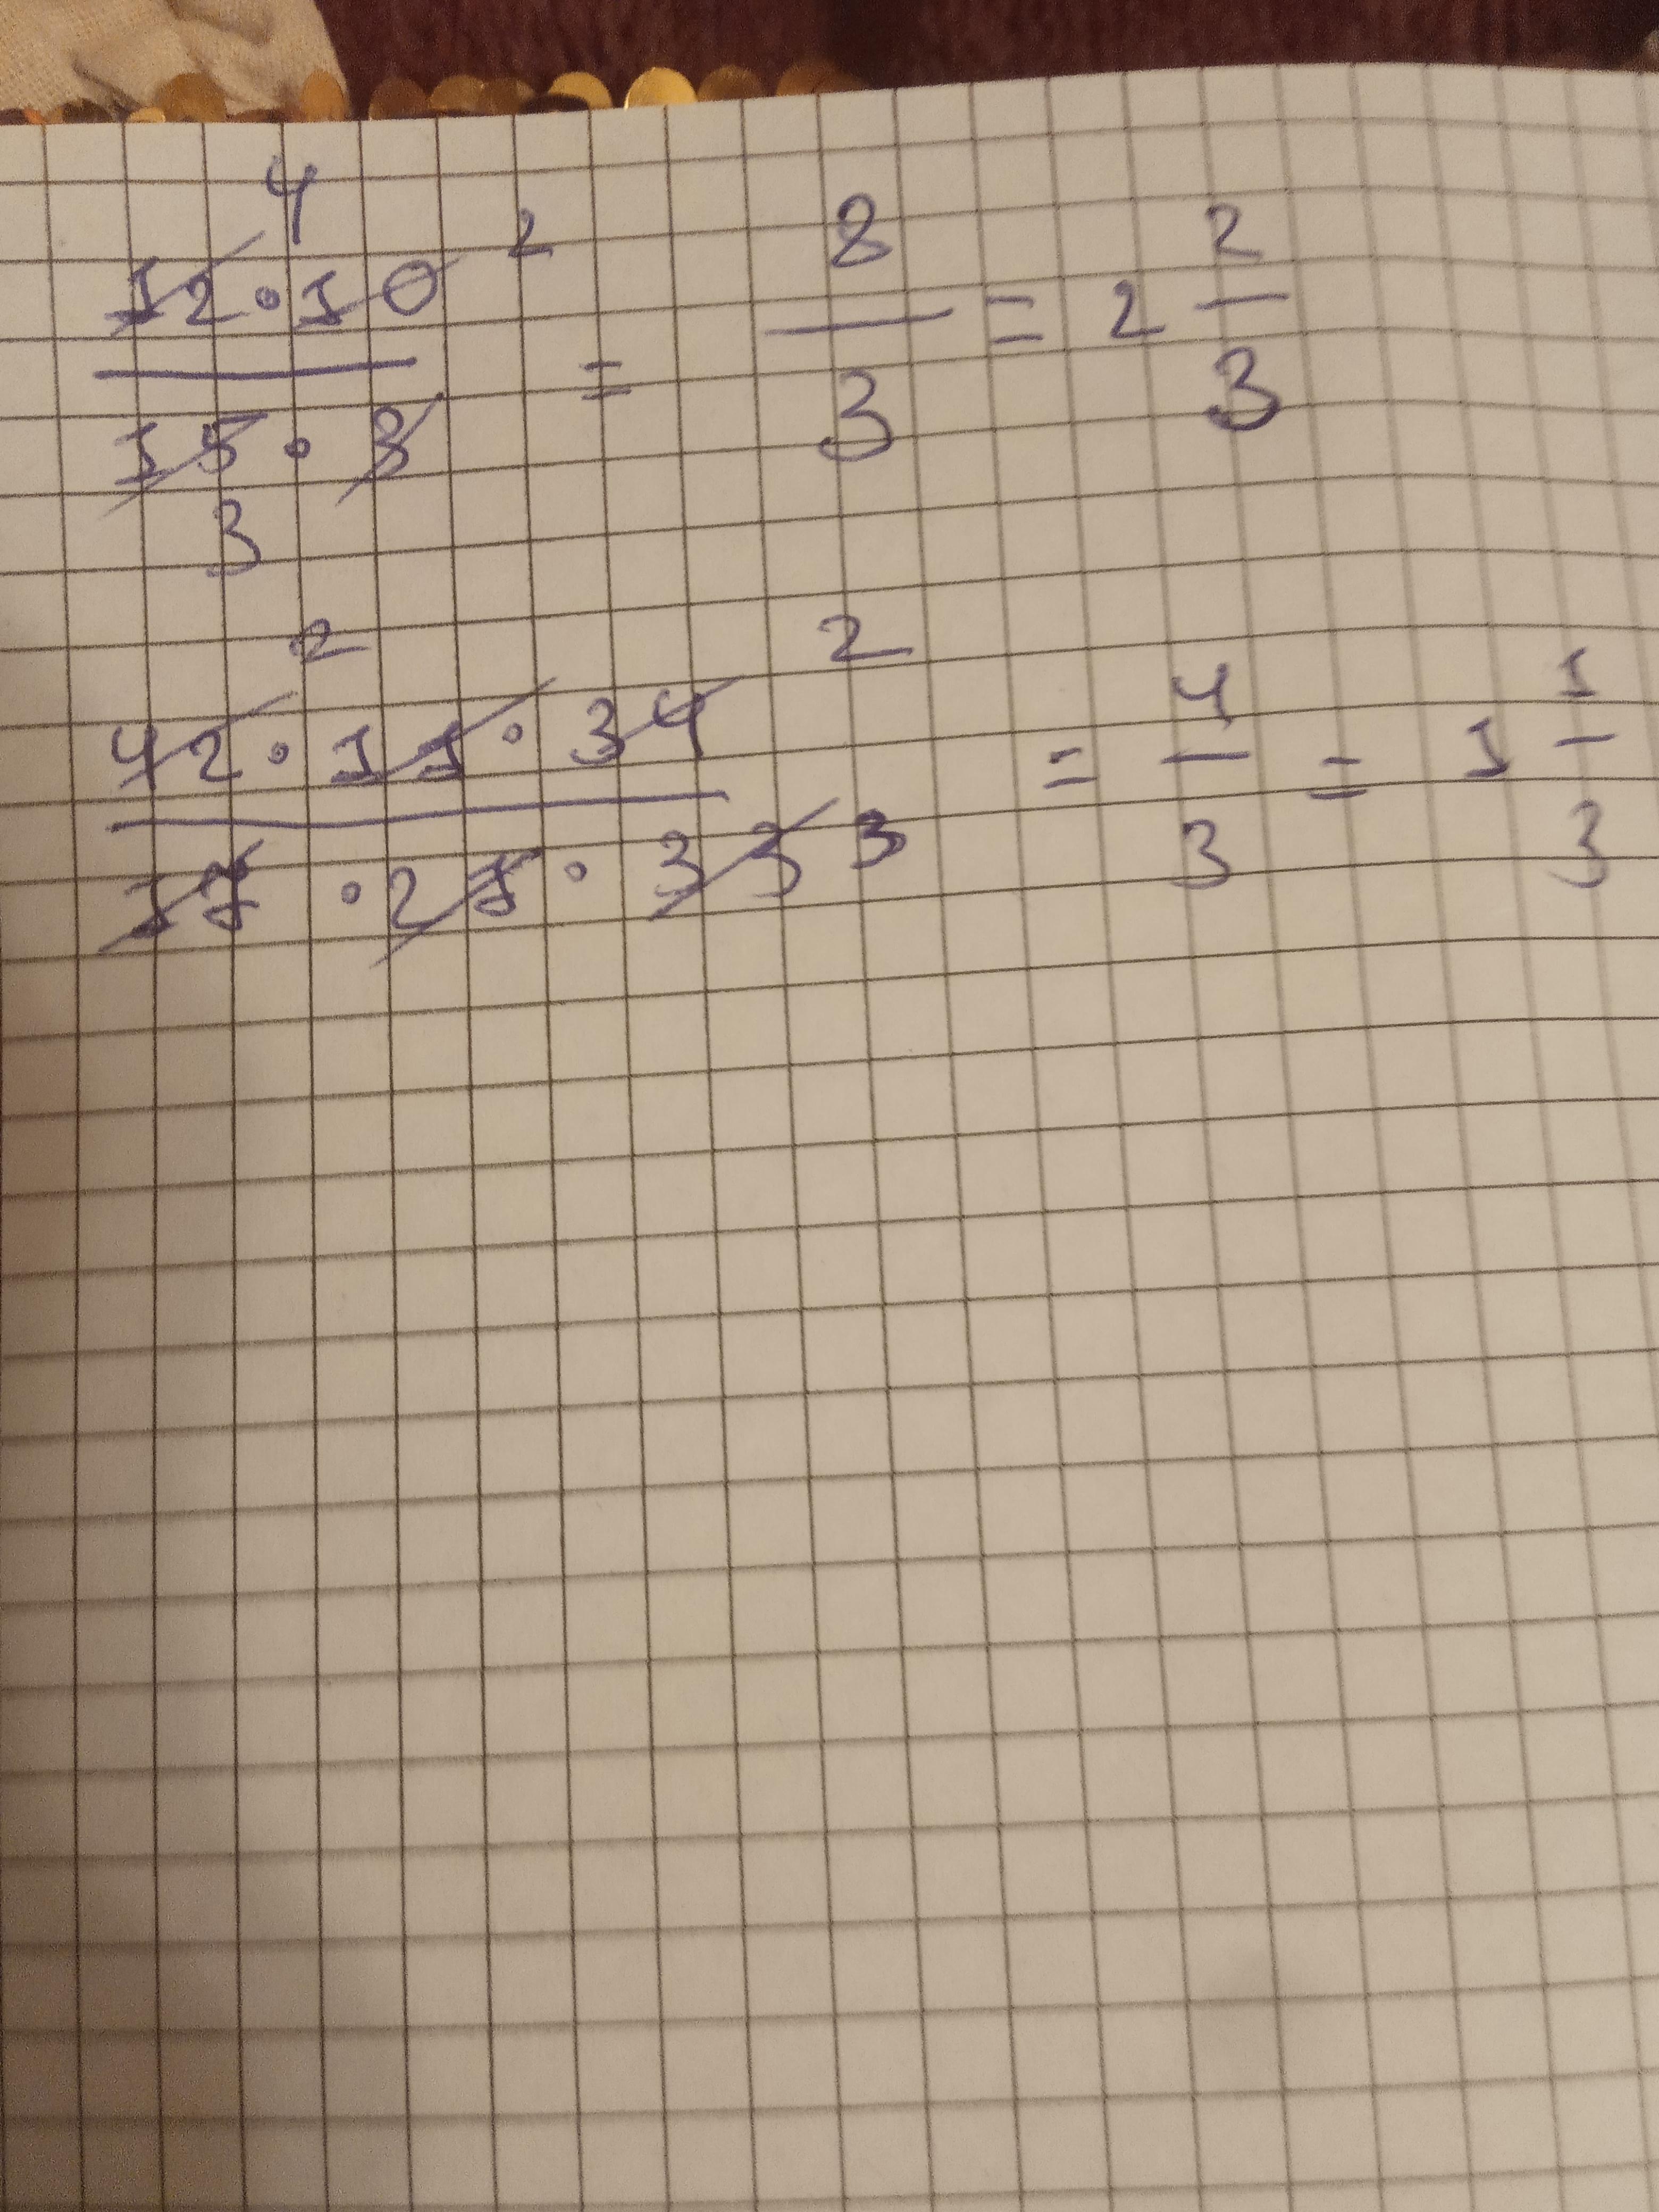 4
12 · 10 2
15 · 3 = 8/3 = 2 2/3
3
2 2
42 · 11 · 34
17 · 21 · 33 3 = 4/3 = 1 1/3